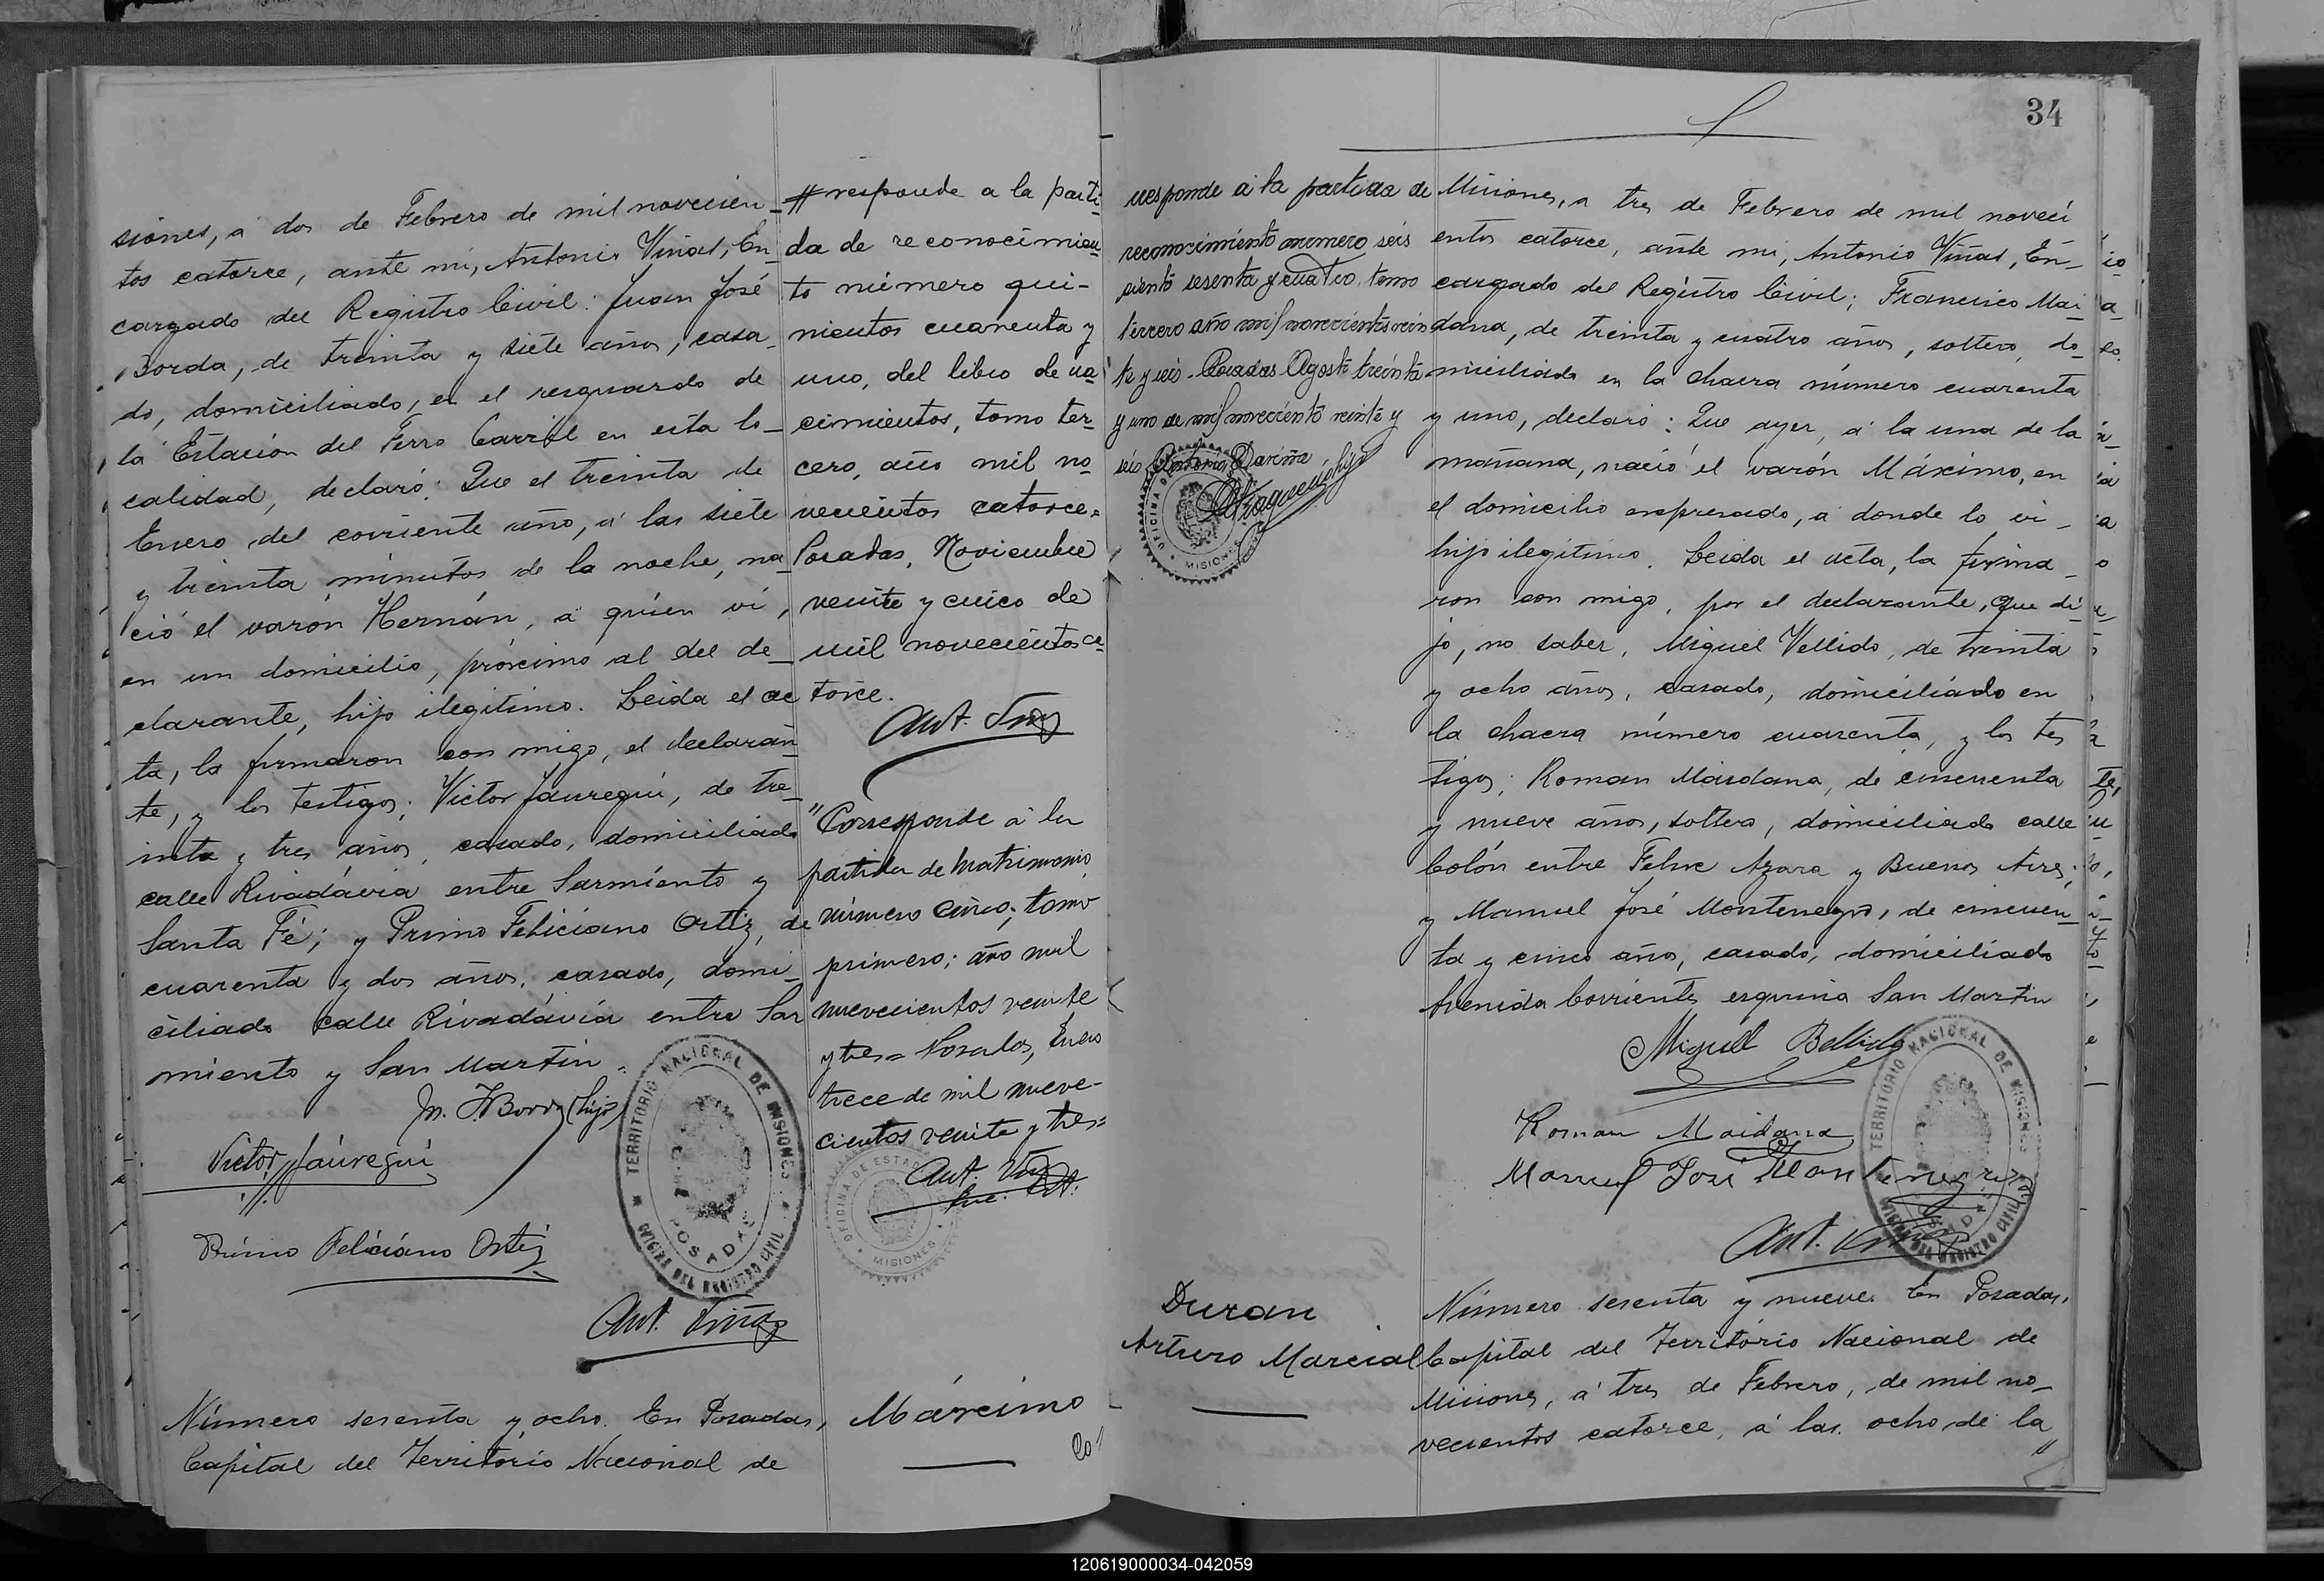 siones, a dos de Febrero de mil novecien-
tos catorce, ante mi, Antonio Viñas, En-
cargado del Registro Civil: Juan José
Borda, de treinta y siete años, casa-
do, domiciliado, en el resguardo de
la Estación del Ferro Carril en esta lo-
calidad, declaró: Que el treinta de
Enero del corriente año, a las siete
y treinta minutos de la noche, na-
ció el varón Hernán, a quien vi,
en un domicilio, próximo al del de-
clarante, hijo ilegitimo. Leida el ac
ta, la firmaron con migo, el declaran
te, y los testigos; Victor Jauregui, de tre-
inta y tres años, casado, domiciliado
calle Rivadávia entre Sarmiento y
Santa Fé; y Primo Feliciano Ortiz, de
cuarenta y dos años, casado, domi-
ciliado calle Rivadávia entre Sar
miento y San Martin.
Borda (hijo)
Victor Jáuregui
Primo Feliciano Ortiz
TERRITORIO NACIONAL DE MISIONES
POSADAS
OFICINA DEL REGISTRO CIVIL
Ant. Viñas
Número sesenta y ocho. En Posadas,
Capital del Territorio Nacional de
# responde a la parti-
da de reconocimien-
to número qui-
nientos cuarenta y
uno, del libro de na-
cimientos, tomo ter-
cero, año mil no-
vecientos catorce.
Posadas, Noviembre
veinte y cinco de
mil novecientos ca-
torce.
Ant. Viñas
"Corresponde a la
partida de Matrimonio
número cinco; tomo
primero; año mil
nuevecientos veinte
y tres = Posadas, Enero
trece de mil nueve-
cientos veinte y tres =
Ant. Viñas
OFICINA DE ESTAD
MISIONES
Máximo
Co"
34
rresponde a la partida de
reconocimiento numero seis
siento sesenta y cuatro, tomo
tercero año mil novecientos vein
te y seis - Posadas Agosto treinta
y uno de mil novecientos veinte y
seis Antonio Dariña
OFICINA DE
MISIONES
Misiones, a tres de Febrero de mil noveci
entos catorce, ante mi, Antonio Viñas, En-
cargado del Registro Civil; Francisco Mai
dana, de treinta y cuatro años, soltero, do-
miciliado en la chacra número cuarenta
y uno, declaró: Que ayer, a la una de la
mañana, nació el varón Máximo, en
el domicilio expresado, a donde lo vi-
hijo ilegitimo. Leida el acta, la firma-
ron con migo, por el declarante, que di-
jo, no saber, Miguel Vellido, de treinta
y ocho años, casado, domiciliado en
la chacra número cuarenta, y los tes
tigos; Roman Maidana, de cincuenta
y nueve años, soltero, domiciliado calle
Colón entre Felix Azara y Buenos Aires;
y Manuel José Montenegro, de cincuen-
ta y cinco años, casado, domiciliado
Avenida Corrientes esquina San Martin
Miguel Bellido
Roman Maidana
Manuel José Montenegro
TERRITORIO NACIONAL DE MISIONES
POSADAS
OFICINA DEL REGISTRO CIVIL
Ant. Viñas
Duran
Arturo Marcial
Número sesenta y nueve. En Posadas,
Capital del Territorio Nacional de
Misiones, a tres de Febrero, de mil no-
vecientos catorce, a las ocho de la
120619000034-042059